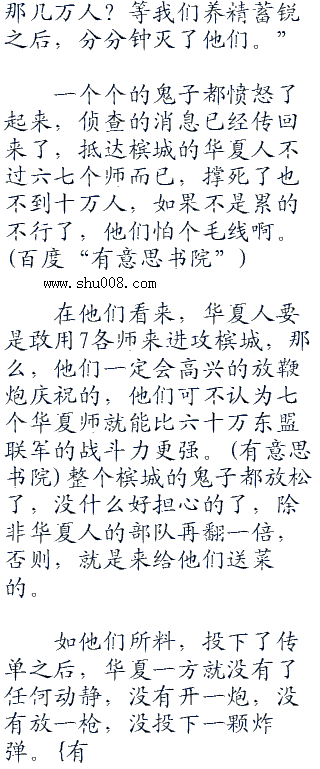 那几万人？等我们养精蓄锐
之后，分分钟灭了他们。”
一个个的鬼子都愤怒了
起来，侦查的消息已经传回
来了，抵达槟城的华夏人不
过六七个师而已，撑死了也
不到十万人，如果不是累的
不行了，他们怕个毛线啊。
(百度“有意思书院”)
www.shu008.com
在他们看来，华夏人要
是敢用7各师来进攻槟城，那
么，他们一定会高兴的放鞭
炮庆祝的，他们可不认为七
个华夏师就能比六十万东盟
联军的战斗力更强。(有意思
书院)整个槟城的鬼子都放松
了，没什么好担心的了，除
非华夏人的部队再翻一倍，
否则，就是来给他们送菜
的。
如他们所料，投下了传
单之后，华夏一方就没有了
任何动静，没有开一炮，没
有放一枪，没投下一颗炸
弹。{有